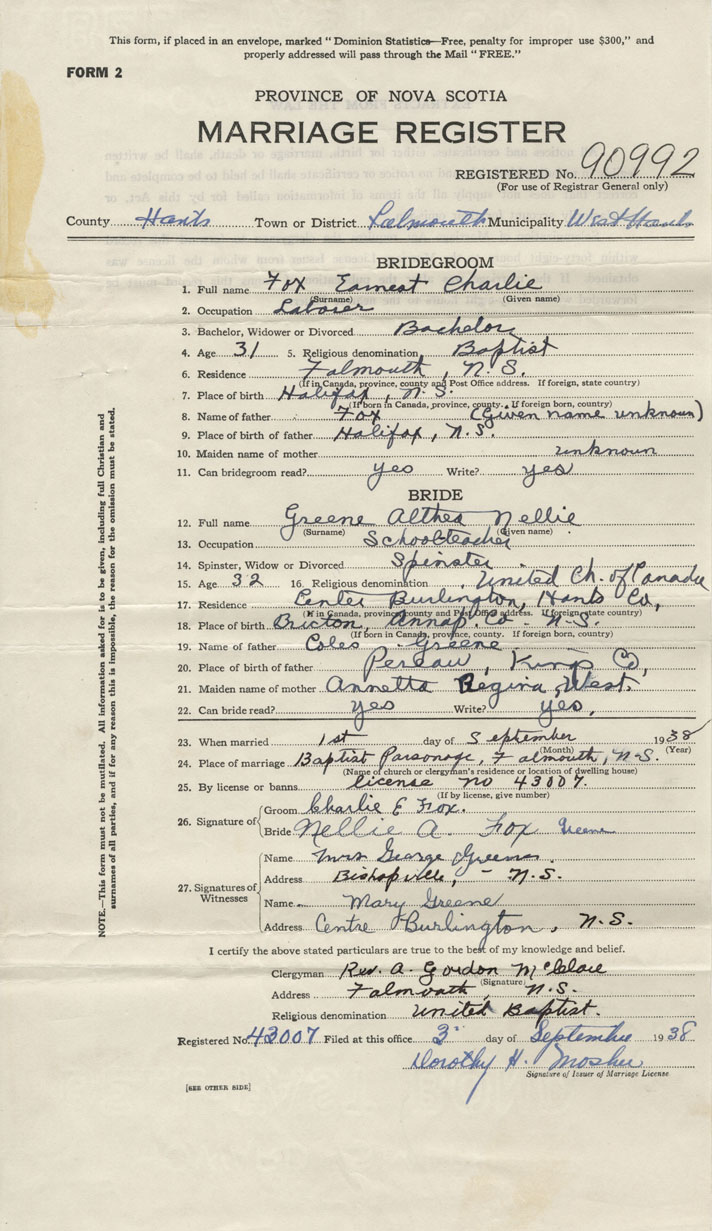 This form, if placed in an envelope, marked "Dominion Statistics—Free, penalty for improper use $300," and
properly addressed will pass through the Mail "FREE."
FORM 2
PROVINCE OF NOVA SCOTIA
MARRIAGE REGISTER
REGISTERED No. 90992
(For use of Registrar General only)
County Hants Town or District Falmouth Municipality West Hants
BRIDEGROOM
1. Full name Fox Earnest Charlie
(Surname) (Given name)
2. Occupation Laborer
3. Bachelor, Widower or Divorced Bachelor
4. Age 31 5. Religious denomination Baptist
6. Residence Falmouth, N.S.
(If in Canada, province, county and Post Office address. If foreign, state country)
7. Place of birth Halifax, N.S.
(If born in Canada, province, county. If foreign born, country)
8. Name of father Fox (Given name unknown)
9. Place of father Halifax, N.S.
10. Maiden name of mother unknown
11. Can bridegroom read? yes Write? yes
BRIDE
12. Full name Greene Althea Nellie
(Surname) (Given name)
13. Occupation Schoolteacher
14. Spinster, Widow or Divorced Spinster
15. Age 32 16. Religious denomination United Ch. of Canada
17. Residence Center Burlington, Hants Co,
(If in Canada, province, county and Post Office address. If foreign, state country)
18. Place of birth Annap. Co. N.S.
(If born in Canada, province, county. If foreign born, country)
19. Name of father Coles Greene
20. Place of birth of father Kings Co,
21. Maiden name of mother Annetta Regina West.
22. Can bride read? yes Write? yes,
23. When married 1st day of September 1938
(Month) (Year)
24. Place of marriage Baptist Parsonage, Falmouth, N.S.
(Name of church or clergyman's residence or location of dwelling house)
25. By license or banns license no 43007.
(If by license, give number)
26. Signature of Groom Charlie E Fox.
Bride Nellie A. Fox Greene
27. Signatures of Witnesses
Name Mrs George Greene.
Address Bishopville, - N.S.
Name Mary Greene
Address Centre Burlington, N.S.
I certify the above stated particulars are true to the best of my knowledge and belief.
Clergyman Rev. A. Gordon
(Signature)
Address Falmouth, N.S.
Religious denomination United Baptist.
Registered No. 43007 Filed at this office 3 day of September 1938
Dorothy H. Mosher
Signature of Issuer of Marriage License
[SEE OTHER SIDE]
NOTE.—This form must not be mutilated. All information asked for is to be given, including full Christian and
surnames of all parties, and if for any reason this is impossible, the reason for the omission must be stated.